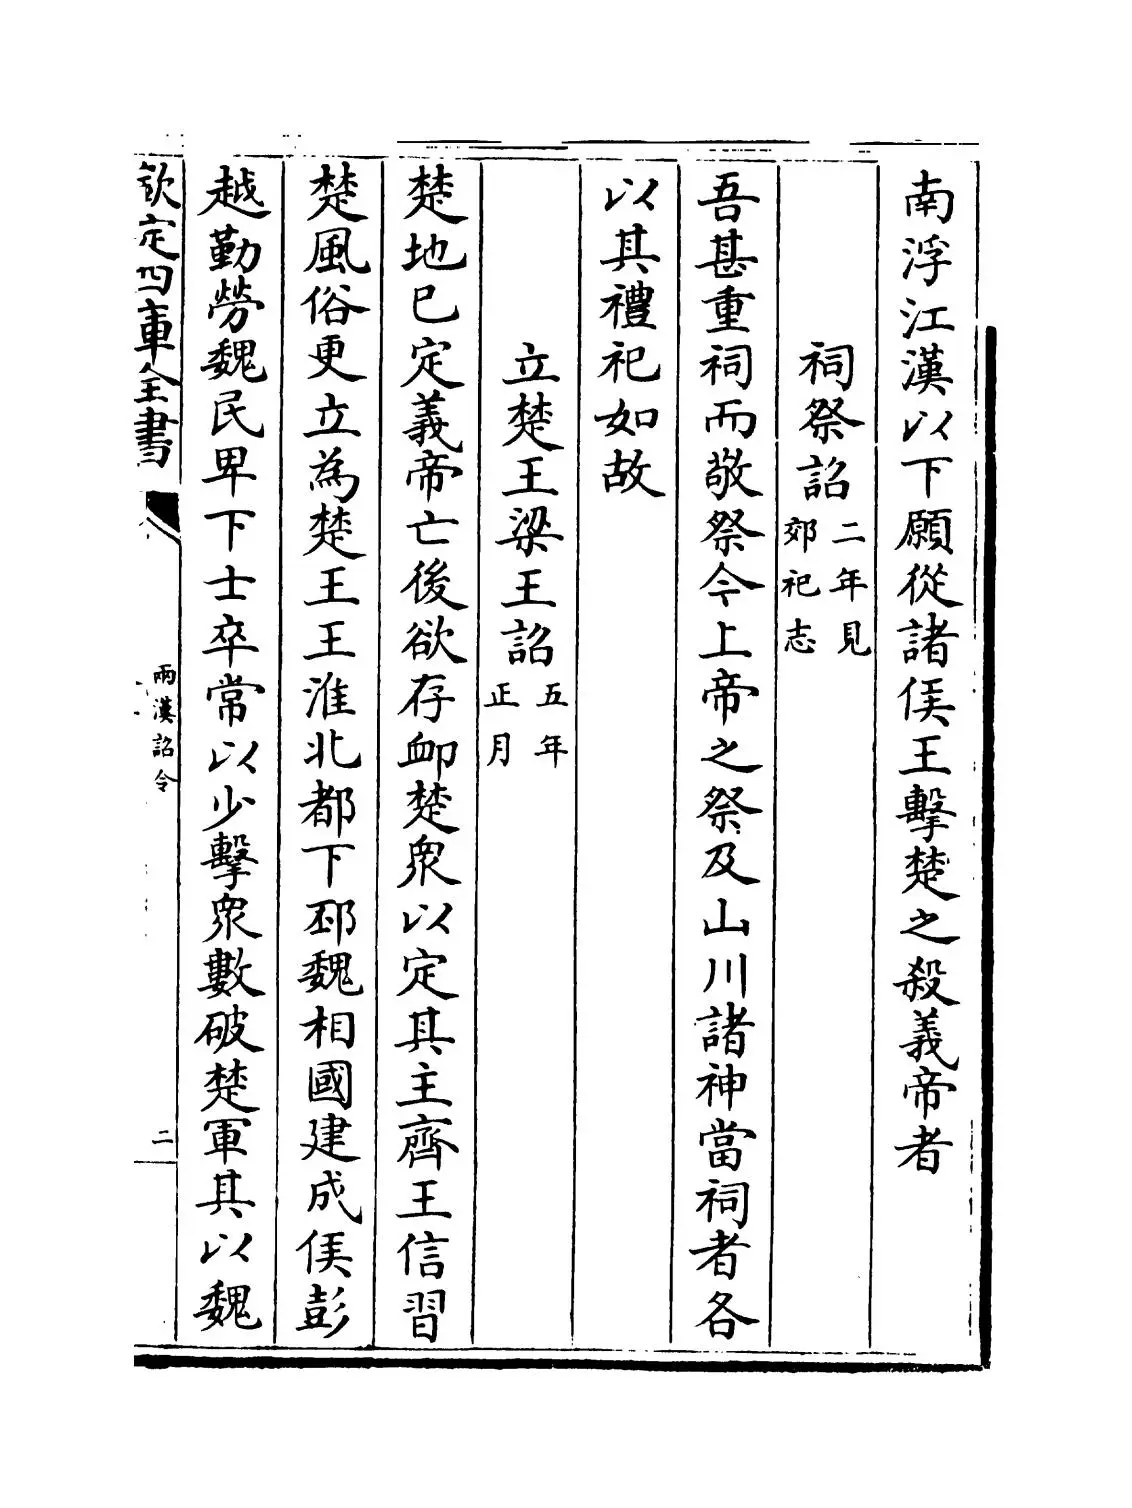 南浮江漢以下願從諸侯王擊楚之殺義帝者
祠祭詔二年見郊祀志
吾甚重祠而敬祭今上帝之祭及山川諸神當祠者各
以其禮祀如故
立楚王梁王詔五年正月
楚地已定義帝亡後欲存卹楚衆以定其主齊王信習
楚風俗更立為楚王王淮北都下邳魏相國建成侯彭
越勤勞魏民卑下士卒常以少擊衆數破楚軍其以魏
欽定四庫全書
兩漢詔令
二